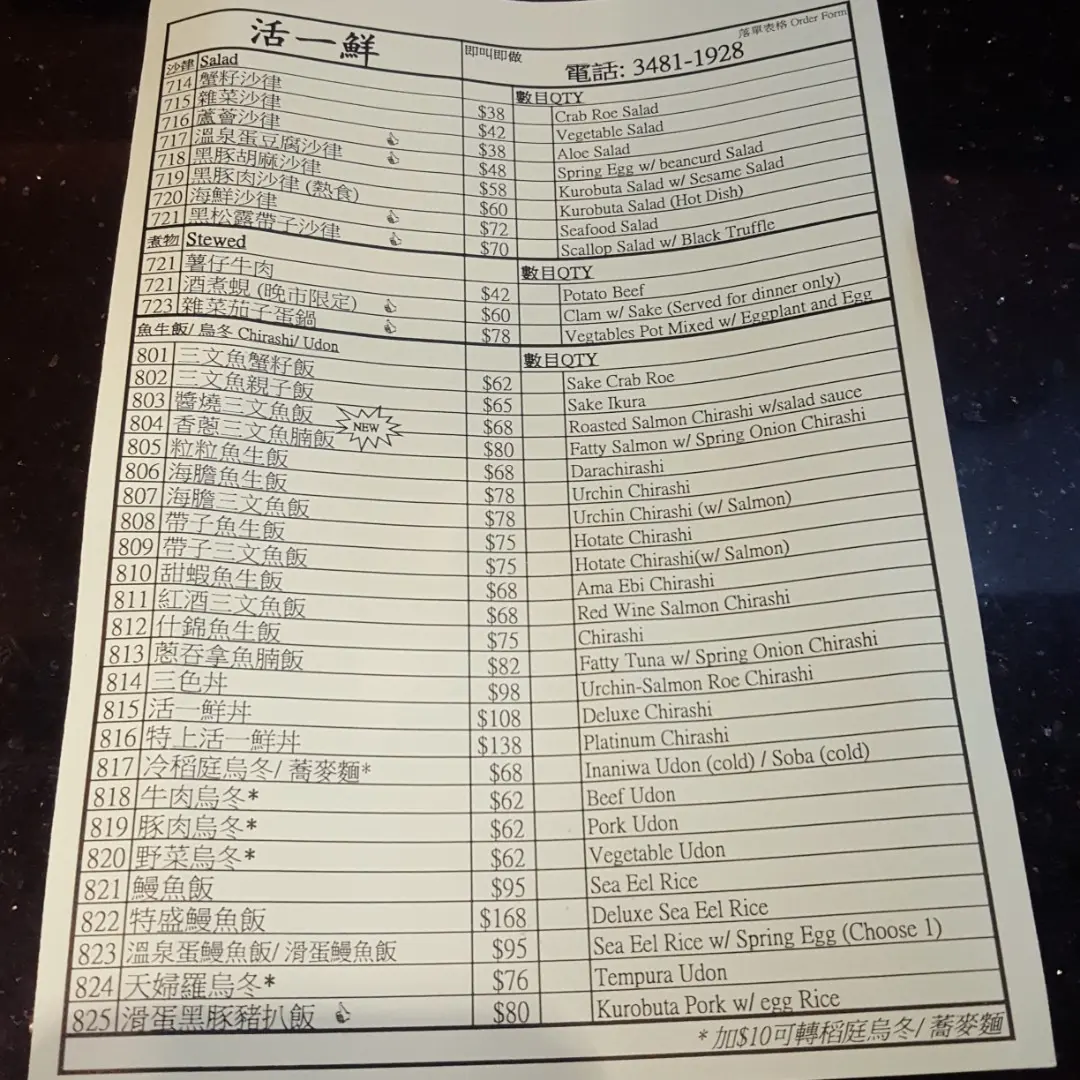 落單表格 Order Form
活一鮮 即叫即做 電話: 3481-1928
沙律 Salad 數目QTY
714 蟹籽沙律 $38 Crab Roe Salad
715 雜菜沙律 $42 Vegetable Salad
716 蘆薈沙律 $38 Aloe Salad
717 溫泉蛋豆腐沙律 $48 Spring Egg w/ beancurd Salad
718 黑豚胡麻沙律 $58 Kurobuta Salad w/ Sesame Salad
719 黑豚肉沙律 (熱食) $60 Kurobuta Salad (Hot Dish)
720 海鮮沙律 $72 Seafood Salad
721 黑松露帶子沙律 $70 Scallop Salad w/ Black Truffle
煮物 Stewed 數目QTY
721 薯仔牛肉 $42 Potato Beef
721 酒煮蜆 (晚市限定) $60 Clam w/ Sake (Served for dinner only)
723 雜菜茄子蛋鍋 $78 Vegtables Pot Mixed w/ Eggplant and Egg
魚生飯/ 烏冬 Chirashi/ Udon 數目QTY
801 三文魚蟹籽飯 $62 Sake Crab Roe
802 三文魚親子飯 $65 Sake Ikura
803 醬燒三文魚飯 $68 Roasted Salmon Chirashi w/salad sauce
804 香蔥三文魚腩飯 NEW $80 Fatty Salmon w/ Spring Onion Chirashi
805 粒粒魚生飯 $68 Darachirashi
806 海膽魚生飯 $78 Urchin Chirashi
807 海膽三文魚飯 $78 Urchin Chirashi (w/ Salmon)
808 帶子魚生飯 $75 Hotate Chirashi
809 帶子三文魚飯 $75 Hotate Chirashi(w/ Salmon)
810 甜蝦魚生飯 $68 Ama Ebi Chirashi
811 紅酒三文魚飯 $68 Red Wine Salmon Chirashi
812 什錦魚生飯 $75 Chirashi
813 蔥吞拿魚腩飯 $82 Fatty Tuna w/ Spring Onion Chirashi
814 三色丼 $98 Urchin-Salmon Roe Chirashi
815 活一鮮丼 $108 Deluxe Chirashi
816 特上活一鮮丼 $138 Platinum Chirashi
817 冷稻庭烏冬/ 蕎麥麵* $68 Inaniwa Udon (cold) / Soba (cold)
818 牛肉烏冬* $62 Beef Udon
819 豚肉烏冬* $62 Pork Udon
820 野菜烏冬* $62 Vegetable Udon
821 鰻魚飯 $95 Sea Eel Rice
822 特盛鰻魚飯 $168 Deluxe Sea Eel Rice
823 溫泉蛋鰻魚飯/ 滑蛋鰻魚飯 $95 Sea Eel Rice w/ Spring Egg (Choose 1)
824 天婦羅烏冬* $76 Tempura Udon
825 滑蛋黑豚豬扒飯 $80 Kurobuta Pork w/ egg Rice
* 加$10可轉稻庭烏冬/ 蕎麥麵